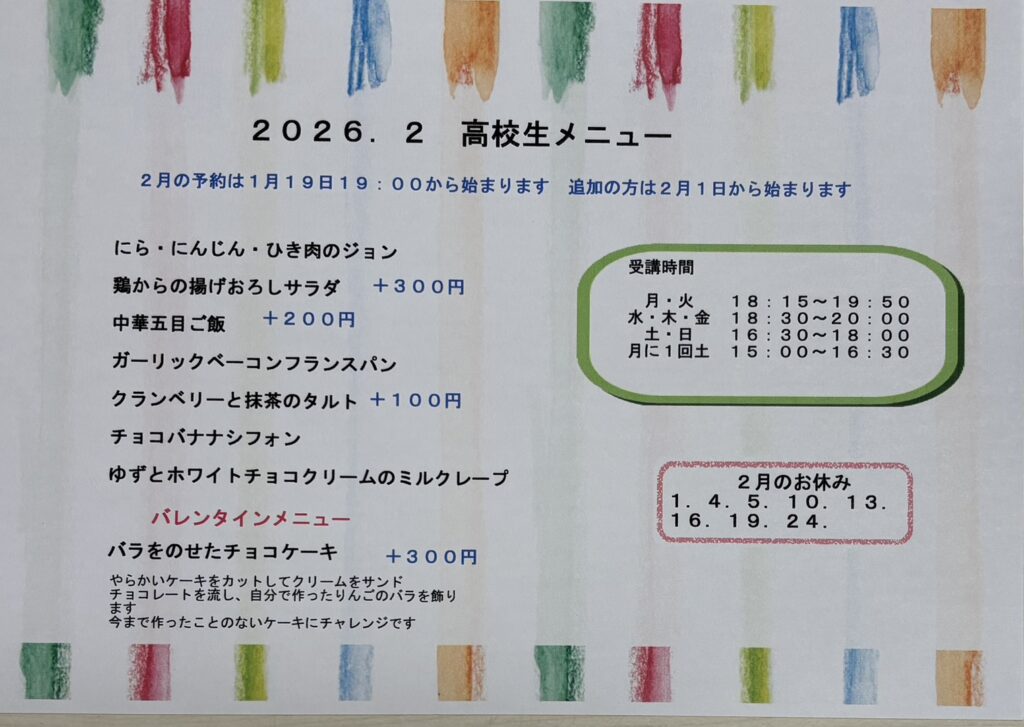 ２０２６．２　高校生メニュー
２月の予約は１月１９日１９：００から始まります　追加の方は２月１日から始まります
にら・にんじん・ひき肉のジョン
鶏からの揚げおろしサラダ　＋３００円
中華五目ご飯　＋２００円
ガーリックベーコンフランスパン
クランベリーと抹茶のタルト　＋１００円
チョコバナナシフォン
ゆずとホワイトチョコクリームのミルクレープ
バレンタインメニュー
バラをのせたチョコケーキ　＋３００円
やらかいケーキをカットしてクリームをサンド
チョコレートを流し、自分で作ったりんごのバラを飾り
ます
今まで作ったことのないケーキにチャレンジです
受講時間
月・火　１８：１５～１９：５０
水・木・金　１８：３０～２０：００
土・日　１６：３０～１８：００
月に１回土　１５：００～１６：３０
２月のお休み
１．４．５．１０．１３．
１６．１９．２４．